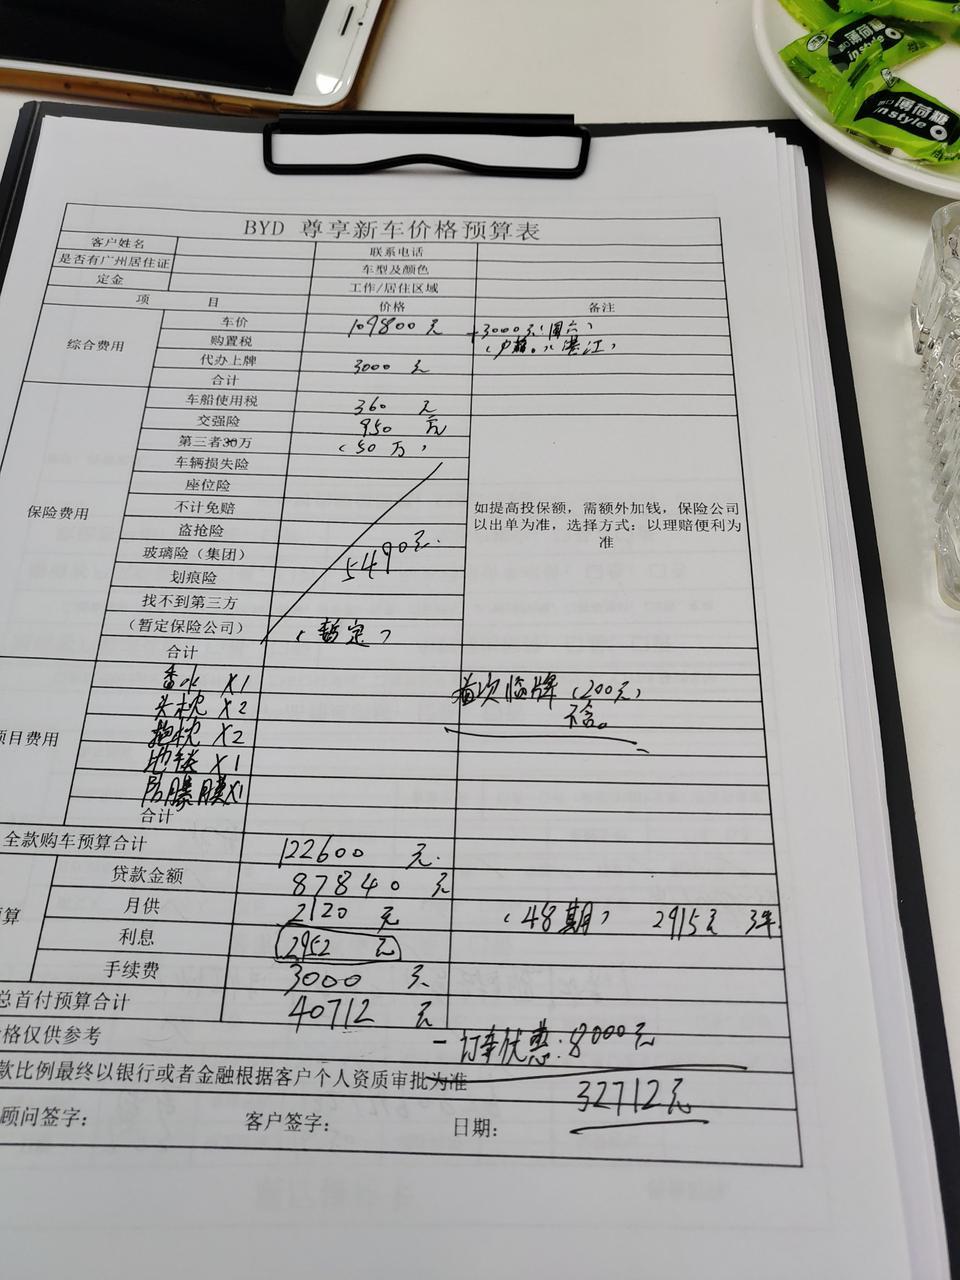 薄荷糖
in style
BYD 尊享新车价格预算表
客户姓名 联系电话
是否有广州居住证 车型及颜色
定金 工作/居住区域
项 目 价格 备注
综合费用
车价 109800元 +3000元(周六)
购置税 湛江)
代办上牌 3000 元
合计
保险费用
车船使用税 360 元
交强险 950 元
第三者30万 (50万)
车辆损失险
座位险
不计免赔
盗抢险
玻璃险(集团) 5490元.
划痕险
找不到第三方
(暂定保险公司) (暂定)
合计
如提高投保额,需额外加钱,保险公司
以出单为准,选择方式:以理赔便利为
准
项目费用
香水 X1
头枕 X2
抱枕 X2
地毯 X1
防爆膜X1
合计
首次临牌(200元)
不含。
全款购车预算合计 122600 元.
算
贷款金额 87840 元
月供 2120 元 (48期) 2915元 3年
利息 2952 元
手续费 3000 元
总首付预算合计 40712 元
价格仅供参考 -订车优惠:8000元
款比例最终以银行或者金融根据客户个人资质审批为准
32712元
顾问签字: 客户签字: 日期: